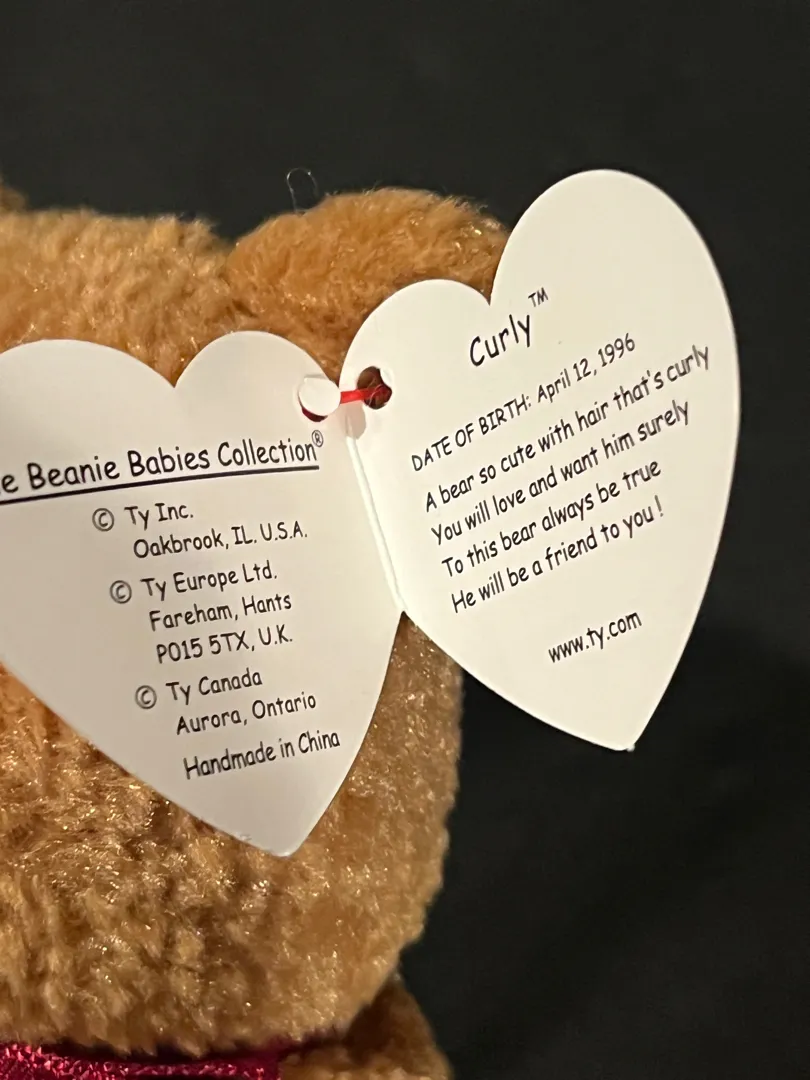 e Beanie Babies Collection®
© Ty Inc.
Oakbrook, IL. U.S.A.
© Ty Europe Ltd.
Fareham, Hants
PO15 5TX, U.K.
© Ty Canada
Aurora, Ontario
Handmade in China
Curly™
DATE OF BIRTH: April 12, 1996
A bear so cute with hair that's curly
You will love and want him surely
To this bear always be true
He will be a friend to you!
www.ty.com